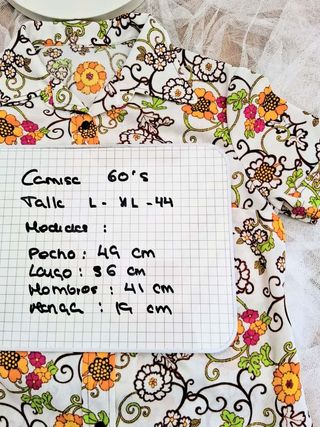 Camisa 60's
Talla L - XL - 44
Medidas :
Pecho : 49 cm
Largo : 56 cm
Hombros : 41 cm
Manga : 19 cm